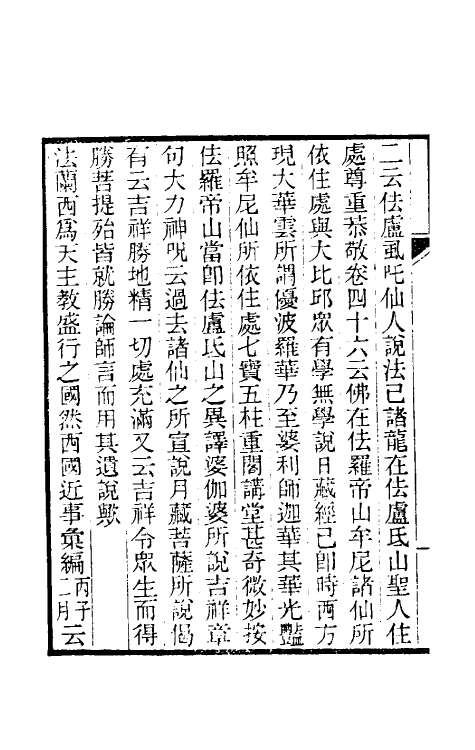 二云佉盧虱吒仙人說法已諸龍在佉盧氐山聖人住
處尊重恭敬卷四十六云佛在佉羅帝山牟尼諸仙所
依住處與大比邱眾有學無學說日藏經已卽時西方
現大華雲所謂優波羅華乃至婆利師迦華其華光豔
照牟尼仙所依住處七寶五柱重閣講堂甚奇微妙按
佉羅帝山當卽佉盧氐山之異譯婆伽婆所說吉祥章
句大力神呪云過去諸仙之所宣說月藏菩薩所說偈
有云吉祥勝地精一切處充滿又云吉祥令眾生而得
勝菩提殆皆就勝論師言而用其遺說歟
法蘭西爲天主敎盛行之國然西國近事彙編丙子二月云